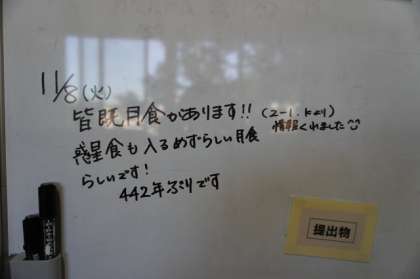 11/8(火)
皆既月食があります!!(2-1.Kより)
情報くれました
惑星食も入るめずらしい月食
らしいです!
442年ぶりです
提出物